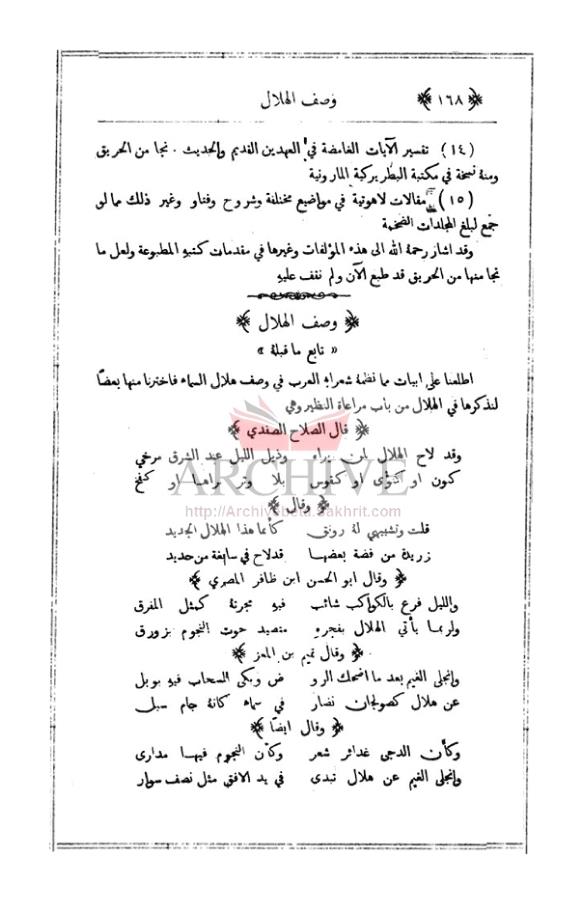 ﴿ ١٦٨ ﴾ وصف الهلال
(١٤) تفسير الآيات الغامضة في العهدين القديم والحديث . نجا من الحريق
ومنه نسخة في مكتبة البطريركية المارونية
(١٥) مقالات لاهوتية في مواضيع مختلفة وشروح وفتاو وغير ذلك مما لو
جمع لبلغ المجلدات الضخمة
وقد اشار رحمة الله الى هذه المؤلفات وغيرها في مقدمات كتبه المطبوعة ولعل ما
نجا منها من الحريق قد طبع الآن ولم نقف عليه
﴿ وصف الهلال ﴾
« تابع ما قبله »
اطلعنا على ابيات مما نظمه شعراء العرب في وصف هلال السماء فاخترنا منها بعضاً
لنذكرها في الهلال من باب مراعاة النظير وهي
﴿ قال الصلاح الصفدي ﴾
وقد لاح الهلال لمن يراه وذيل الليل عند الشرق مرخي
كنون او كنؤي او كقوس بلا وتر تراها او كفخ
﴿ وقال ﴾
قلت وتشبيهي له رونق كأنما هذا الهلال الجديد
زريدة من فضة بعضها قد لاح في سابغة من حديد
﴿ وقال ابو الحسن ابن ظافر المصري ﴾
والليل فرع بالكواكب شائب فيه مجرته كمثل المفرق
ولربما يأتي الهلال بفجره متصيد حوت النجوم بزورق
﴿ وقال تميم بن المعز ﴾
وانجلى الغيم بعد ما اضحك الرو ض وبكى السحاب فيه بوبل
عن هلال كصولجان نضار في سماء كانه جام سبل
﴿ وقال ايضاً ﴾
وكأن الدجى غدائر شعر وكأن النجوم فيها مدارى
وانجلى الغيم عن هلال تبدى في يد الافق مثل نصف سوار
ARCHIVE
http://Archivebeta.Sakhrit.com